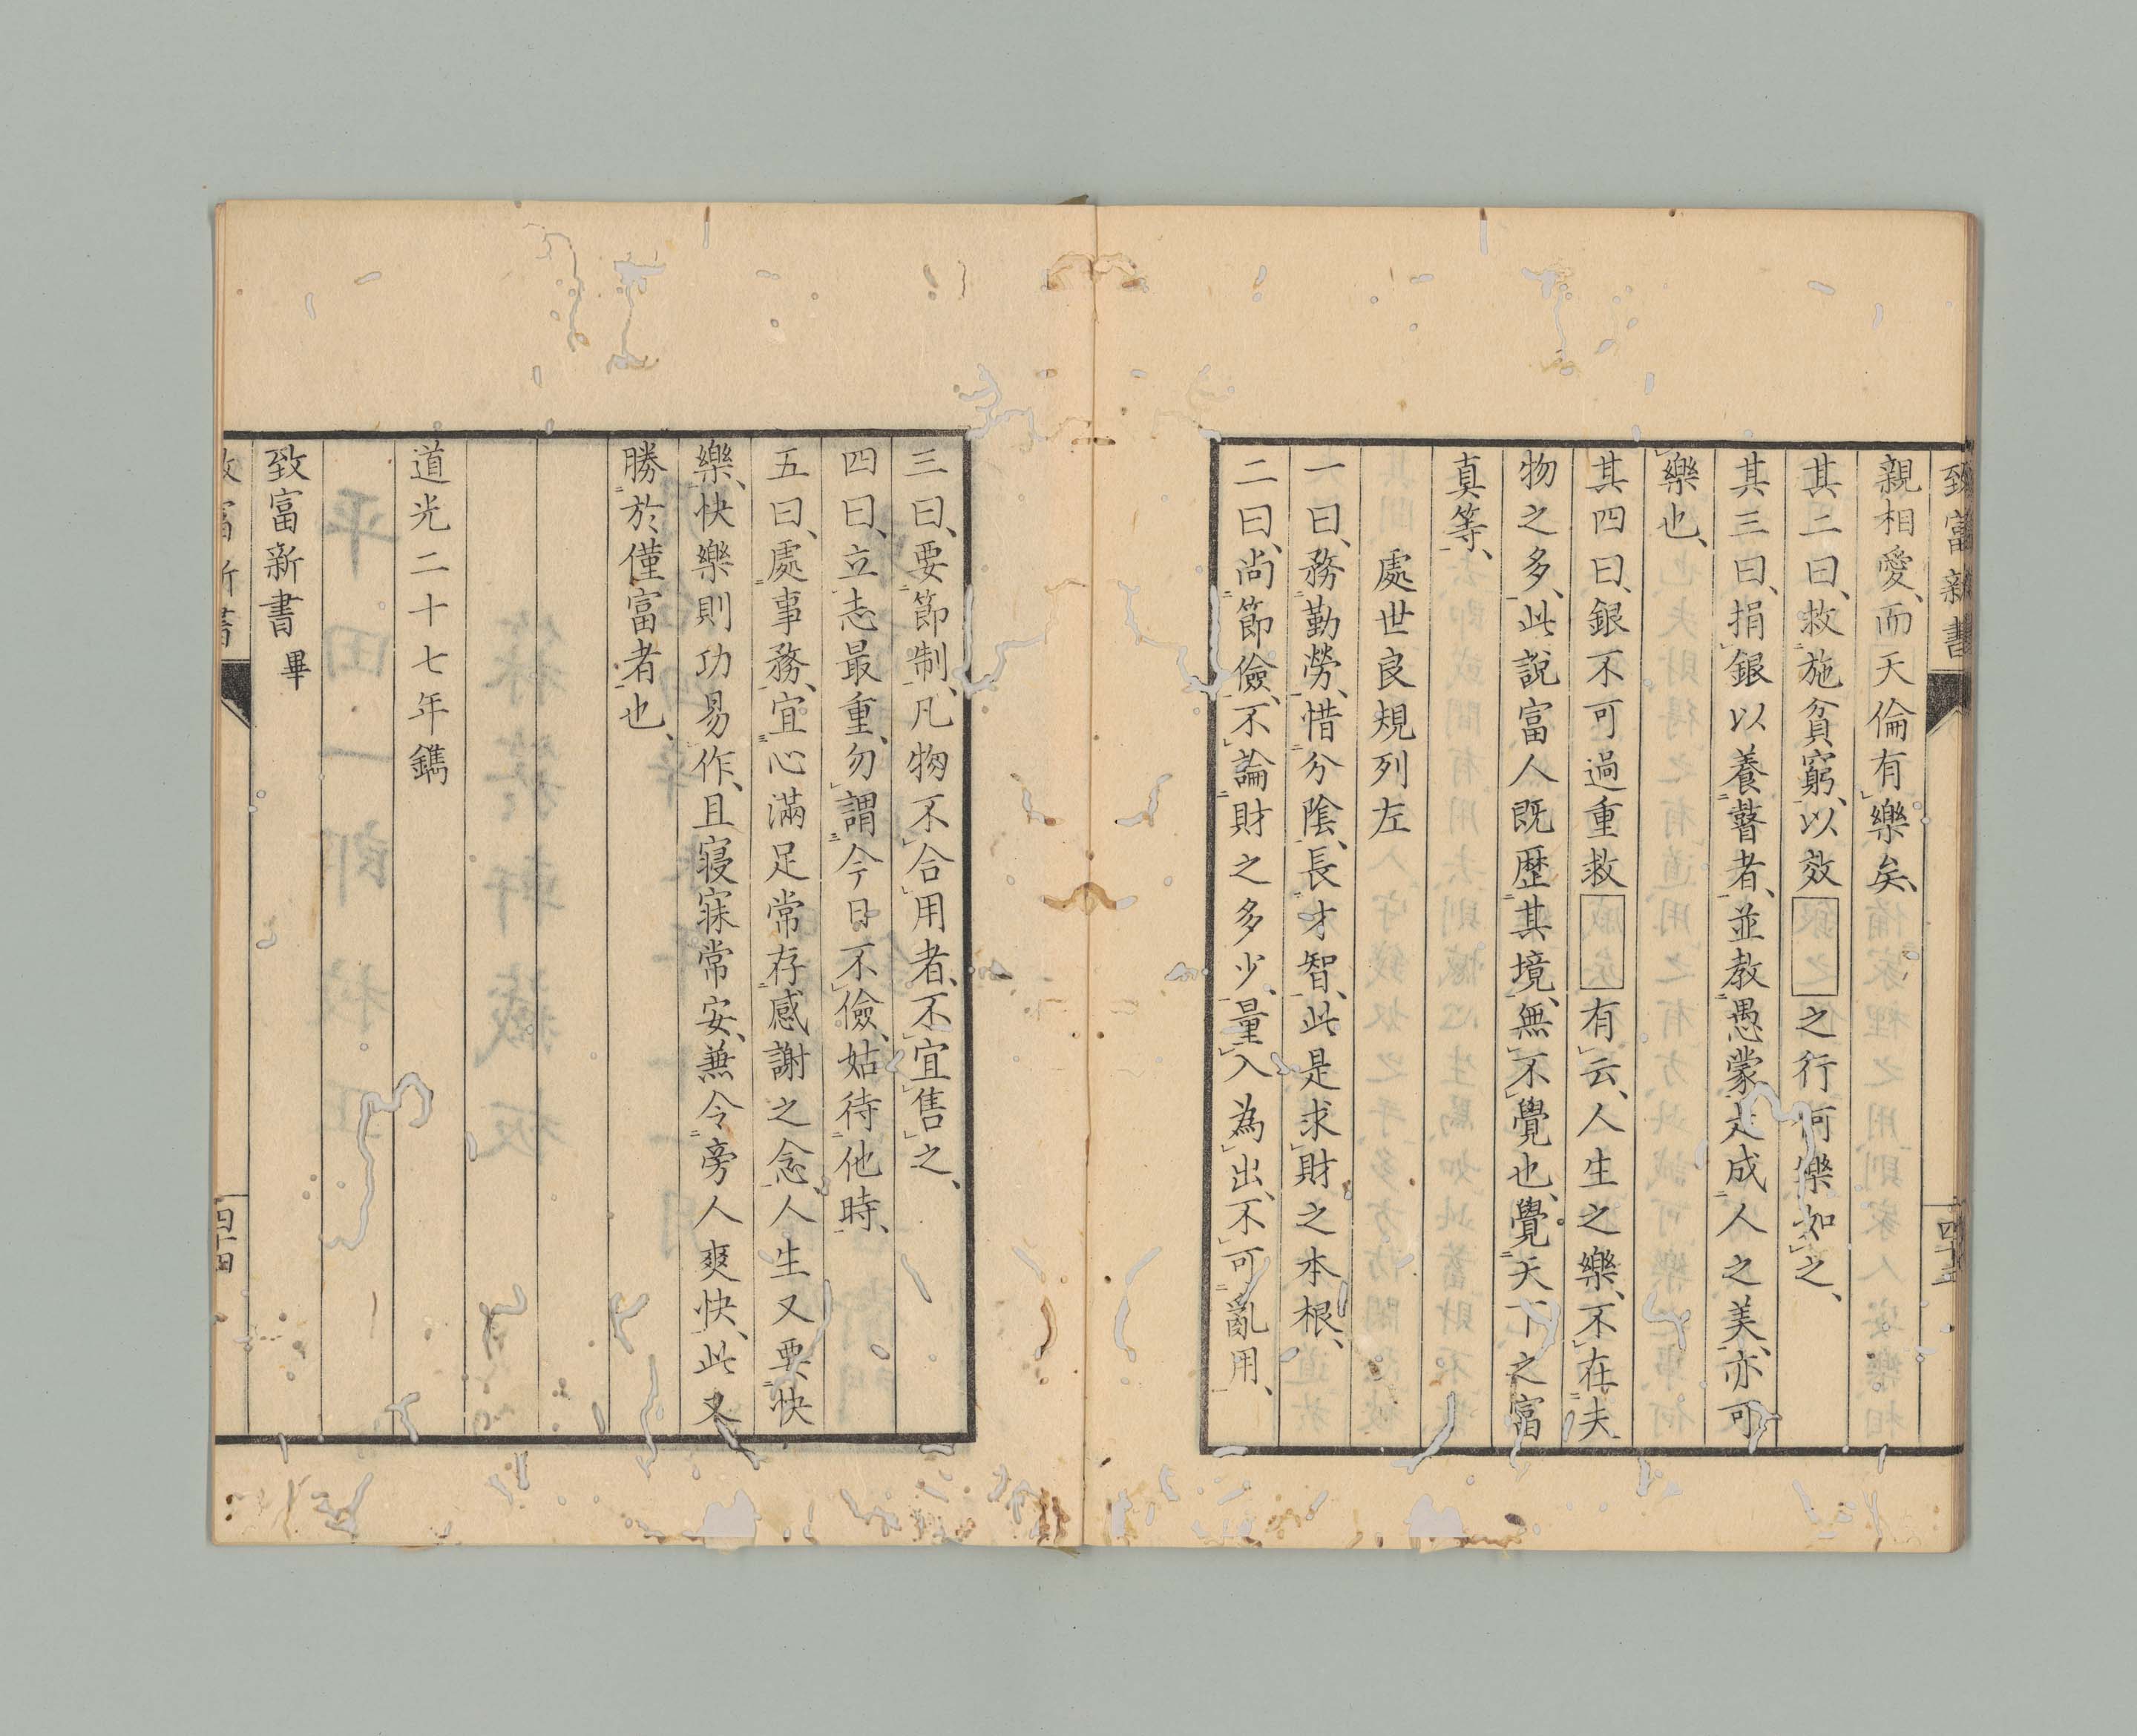 致富新書
四十三
親相愛、而天倫有樂矣、
其二曰、救施貧窮、以效之行何樂如之、
其三曰、捐銀以養瞽者、並教愚蒙走成人之美、亦可
樂也、
其四曰、銀不可過重救有云、人生之樂、不在夫
物之多、此說富人既歷其境、無不覺也、覺天下之富
真等、
處世良規列左
一曰、務勤勞、惜分陰、長才智、此是求財之本根、
二曰、尚節儉、不論財之多少、量入為出、不可亂用、
三曰、要節制、凡物不合用者、不宜售之、
四曰、立志最重、勿謂今日不儉、姑待他時、
五曰、處事務、宜心滿足常存感謝之念、人生又要快
樂、快樂則功易作、且寢寐常安、兼令旁人爽快、此又
勝於僅富者也、
道光二十七年鐫
致富新書畢
致富新書
四十四